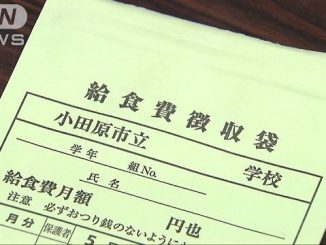 NEWS
給食費徴収袋
小田原市立
学校
学年 組No.
氏名
給食費月額 円也
注意 必ずおつり銭のないように
月分 保護者 5